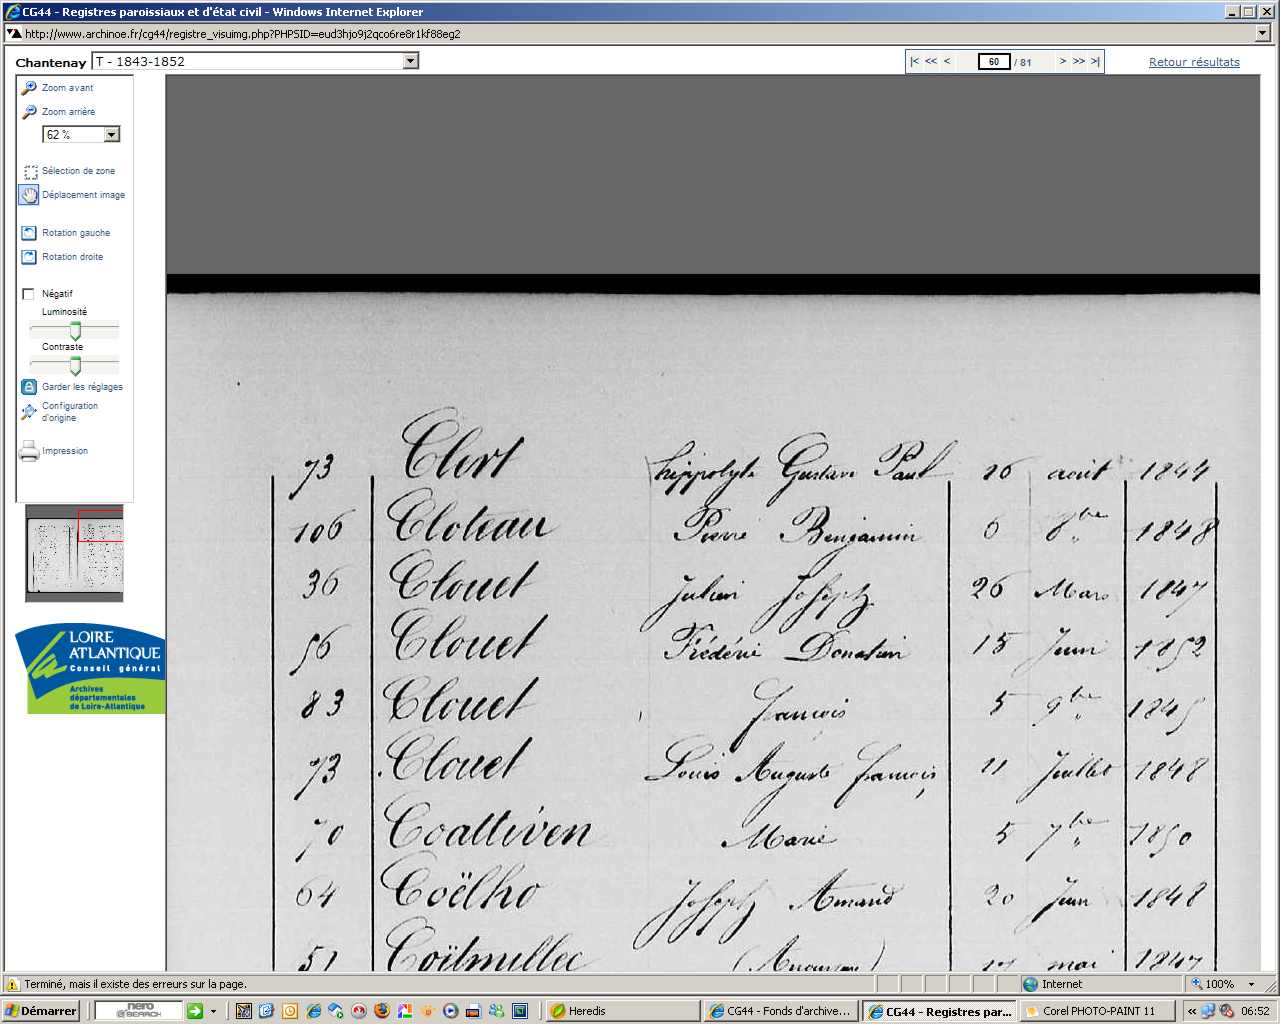 CG44 - Registres paroissiaux et d'état civil - Windows Internet Explorer
http://www.archinoe.fr/cg44/registre_visuimg.php?PHPSID=eud3hjo9j2qco6re8r1kf88eg2
Chantenay T - 1843-1852 |< << < 60 / 81 > >> >| Retour résultats
Zoom avant
Zoom arrière
62 %
Sélection de zone
Déplacement image
Rotation gauche
Rotation droite
Négatif
Luminosité
Contraste
Garder les réglages
Configuration
d'origine
Impression
LOIRE
ATLANTIQUE
Conseil général
Archives
départementales
de Loire-Atlantique
73 Clert hippolyte Gustave Paul 26 août 1844
106 Cloteau Pierre Benjamin 6 8bre 1848
36 Clouet Julien Joseph 26 Mars 1847
56 Clouet Frédéric Donatien 15 Juin 1852
83 Clouet françois 5 9bre 1845
73 Clouet Louis Auguste françois 11 Juillet 1848
70 Coattiven Marie 5 7bre 1850
64 Coëlho Joseph Amand 20 Juin 1848
51 Coïtmellec 17 mai 1847
Terminé, mais il existe des erreurs sur la page. Internet 100%
Démarrer nero SEARCH Heredis CG44 - Fonds d'archive... CG44 - Registres par... Corel PHOTO-PAINT 11 « 06:52